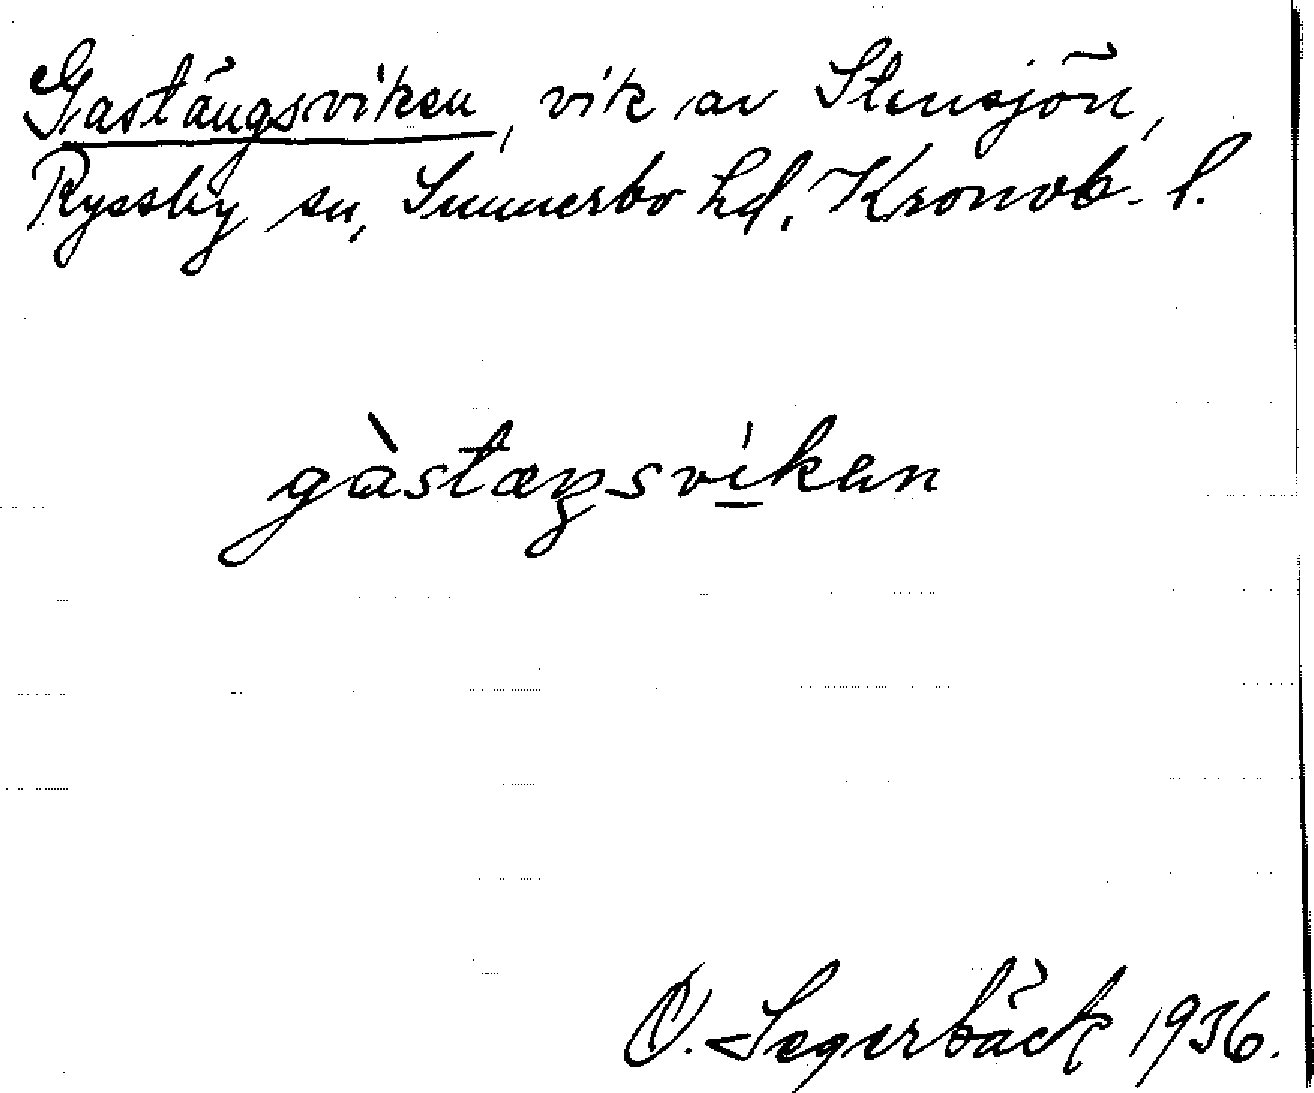 Gastängsviken, vik av Stensjön,
Ryssby sn, Sunnerbo hd, Kronob. l.
gàstæŋsvi̱kən
O. Segerbäck 1936.